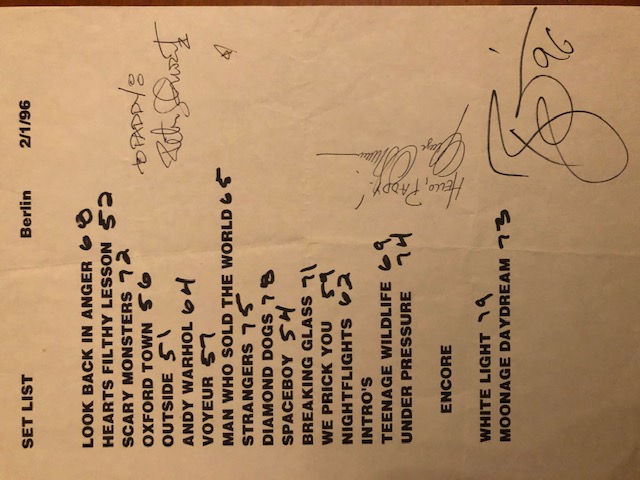 SET LIST Berlin 2/1/96
LOOK BACK IN ANGER 68
HEARTS FILTHY LESSON 52
SCARY MONSTERS 72
OXFORD TOWN 56
OUTSIDE 51
ANDY WARHOL 64
VOYEUR 57
MAN WHO SOLD THE WORLD 65
STRANGERS 75
DIAMOND DOGS 78
SPACEBOY 54
BREAKING GLASS 71
WE PRICK YOU 59
NIGHTFLIGHTS 62
INTRO'S
TEENAGE WILDLIFE 69
UNDER PRESSURE 74
ENCORE
WHITE LIGHT 79
MOONAGE DAYDREAM 73
to PADDY!
HELLO, PADDY!
96